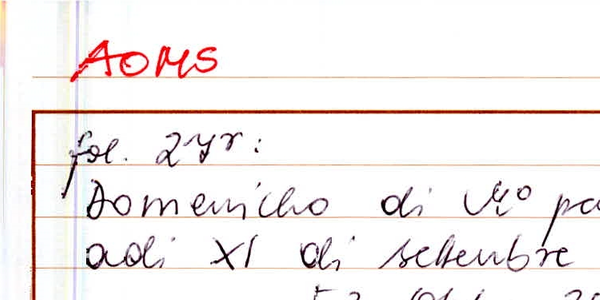 AOMS
fol. 24r:
Domenicho di M° pa
adi XI di settembre